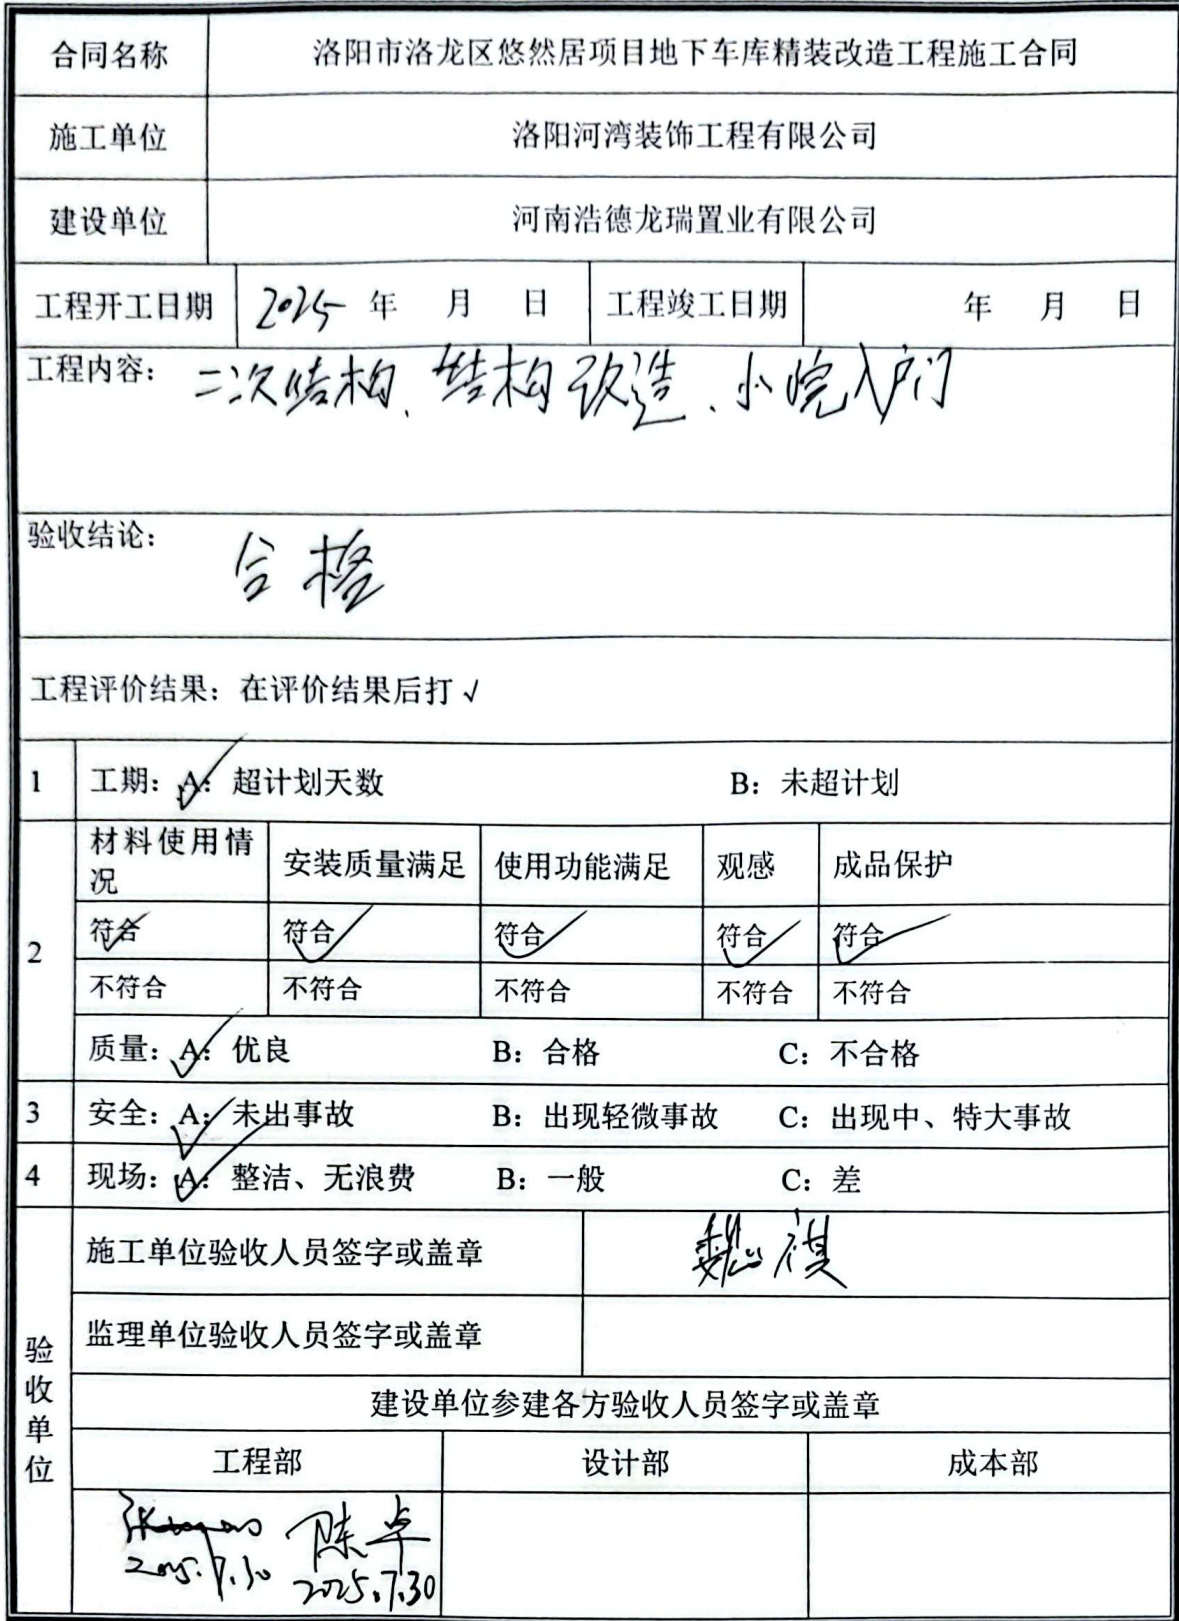 合同名称 洛阳市洛龙区悠然居项目地下车库精装改造工程施工合同
施工单位 洛阳河湾装饰工程有限公司
建设单位 河南浩德龙瑞置业有限公司
工程开工日期 2025 年 月 日 工程竣工日期 年 月 日
工程内容: 二次结构、结构改造、小院入户门
验收结论: 合格
工程评价结果:在评价结果后打√
1 工期:A:超计划天数 B:未超计划
材料使用情
况 安装质量满足 使用功能满足 观感 成品保护
符合 符合 符合 符合 符合
2
不符合 不符合 不符合 不符合 不符合
质量:A:优良 B:合格 C:不合格
3 安全:A:未出事故 B:出现轻微事故 C:出现中、特大事故
4 现场:A:整洁、无浪费 B:一般 C:差
验收单位
施工单位验收人员签字或盖章 魏祺
监理单位验收人员签字或盖章
建设单位参建各方验收人员签字或盖章
工程部 设计部 成本部
张 陈卓
2025.7.30 2025.7.30